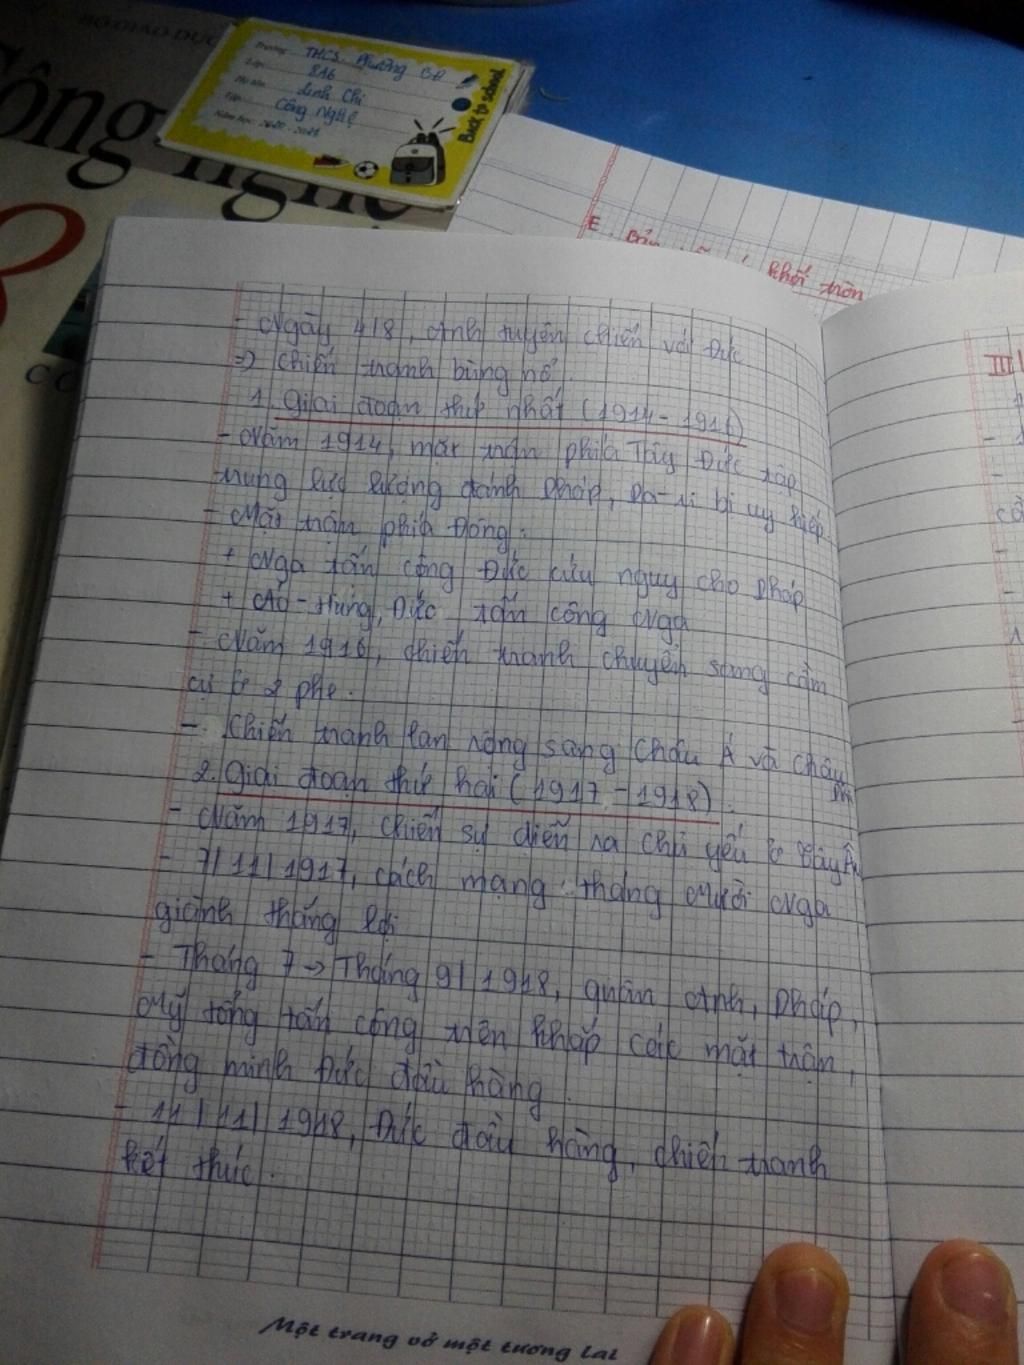 BỘ GIÁO DỤC
Công nghệ
8
Trường: THCS. Phường
Lớp: 8A6
Họ tên: Linh Chi
Công Nghệ
Năm học: 2020 - 2021
Back to school
khối tròn
- Ngày 4/8, Anh tuyên chiến với Đức
=> Chiến tranh bùng nổ.
1. Giai đoạn thứ nhất (1914 - 1916)
- Năm 1914, mặt trận phía Tây Đức tập
trung lực lượng đánh Pháp, Pa-ri bị uy hiếp
- Mặt trận phía Đông:
+ Nga tấn công Đức cứu nguy cho Pháp
+ Áo - Hung, Đức tấn công Nga
- Năm 1916, chiến tranh chuyển sang cầm
cự ở 2 phe.
- Chiến tranh lan rộng sang Châu Á và châu
Phi
2. Giai đoạn thứ hai (1917 - 1918).
- Năm 1917, chiến sự diễn ra chủ yếu ở Tây Âu
- 7/11/1917, cách mạng tháng Mười Nga
giành thắng lợi
- Tháng 7 -> Tháng 9/1918, quân Anh, Pháp,
Mỹ tổng tấn công trên khắp các mặt trận,
đồng minh Đức đầu hàng.
- 11/11/1918, Đức đầu hàng, chiến tranh
kết thúc.
Một trang vở một tương lai
III